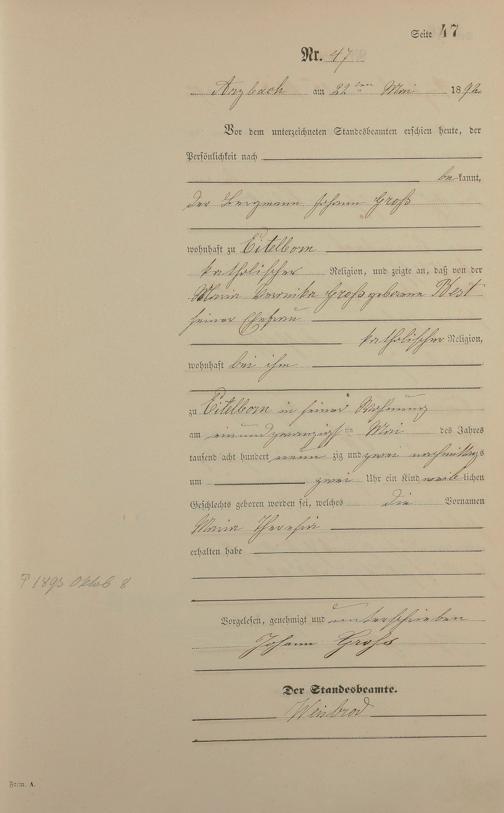 Seite 47
Nr. 47
Arzbach am 22ten Mai 1892
Vor dem unterzeichneten Standesbeamten erschien heute, der
Persönlichkeit nach
bekannt,
der Bergmann Johann Groß
wohnhaft zu Eitelborn
katholischer Religion, und zeigte an, daß von der
Maria Veronika Groß geborene Best
seiner Ehefrau
katholischer Religion,
wohnhaft bei ihm
zu Eitelborn in seiner Wohnung
am einundzwanzigsten Mai des Jahres
tausend acht hundert neunzig und zwei nachmittags
um zwei Uhr ein Kind weiblichen
Geschlechts geboren worden sei, welches die Vornamen
Maria Theresia
erhalten habe
† 1893 Oktob 8
Vorgelesen, genehmigt und unterschrieben
Johann Groß
Der Standesbeamte.
Weinbrod
Form. A.